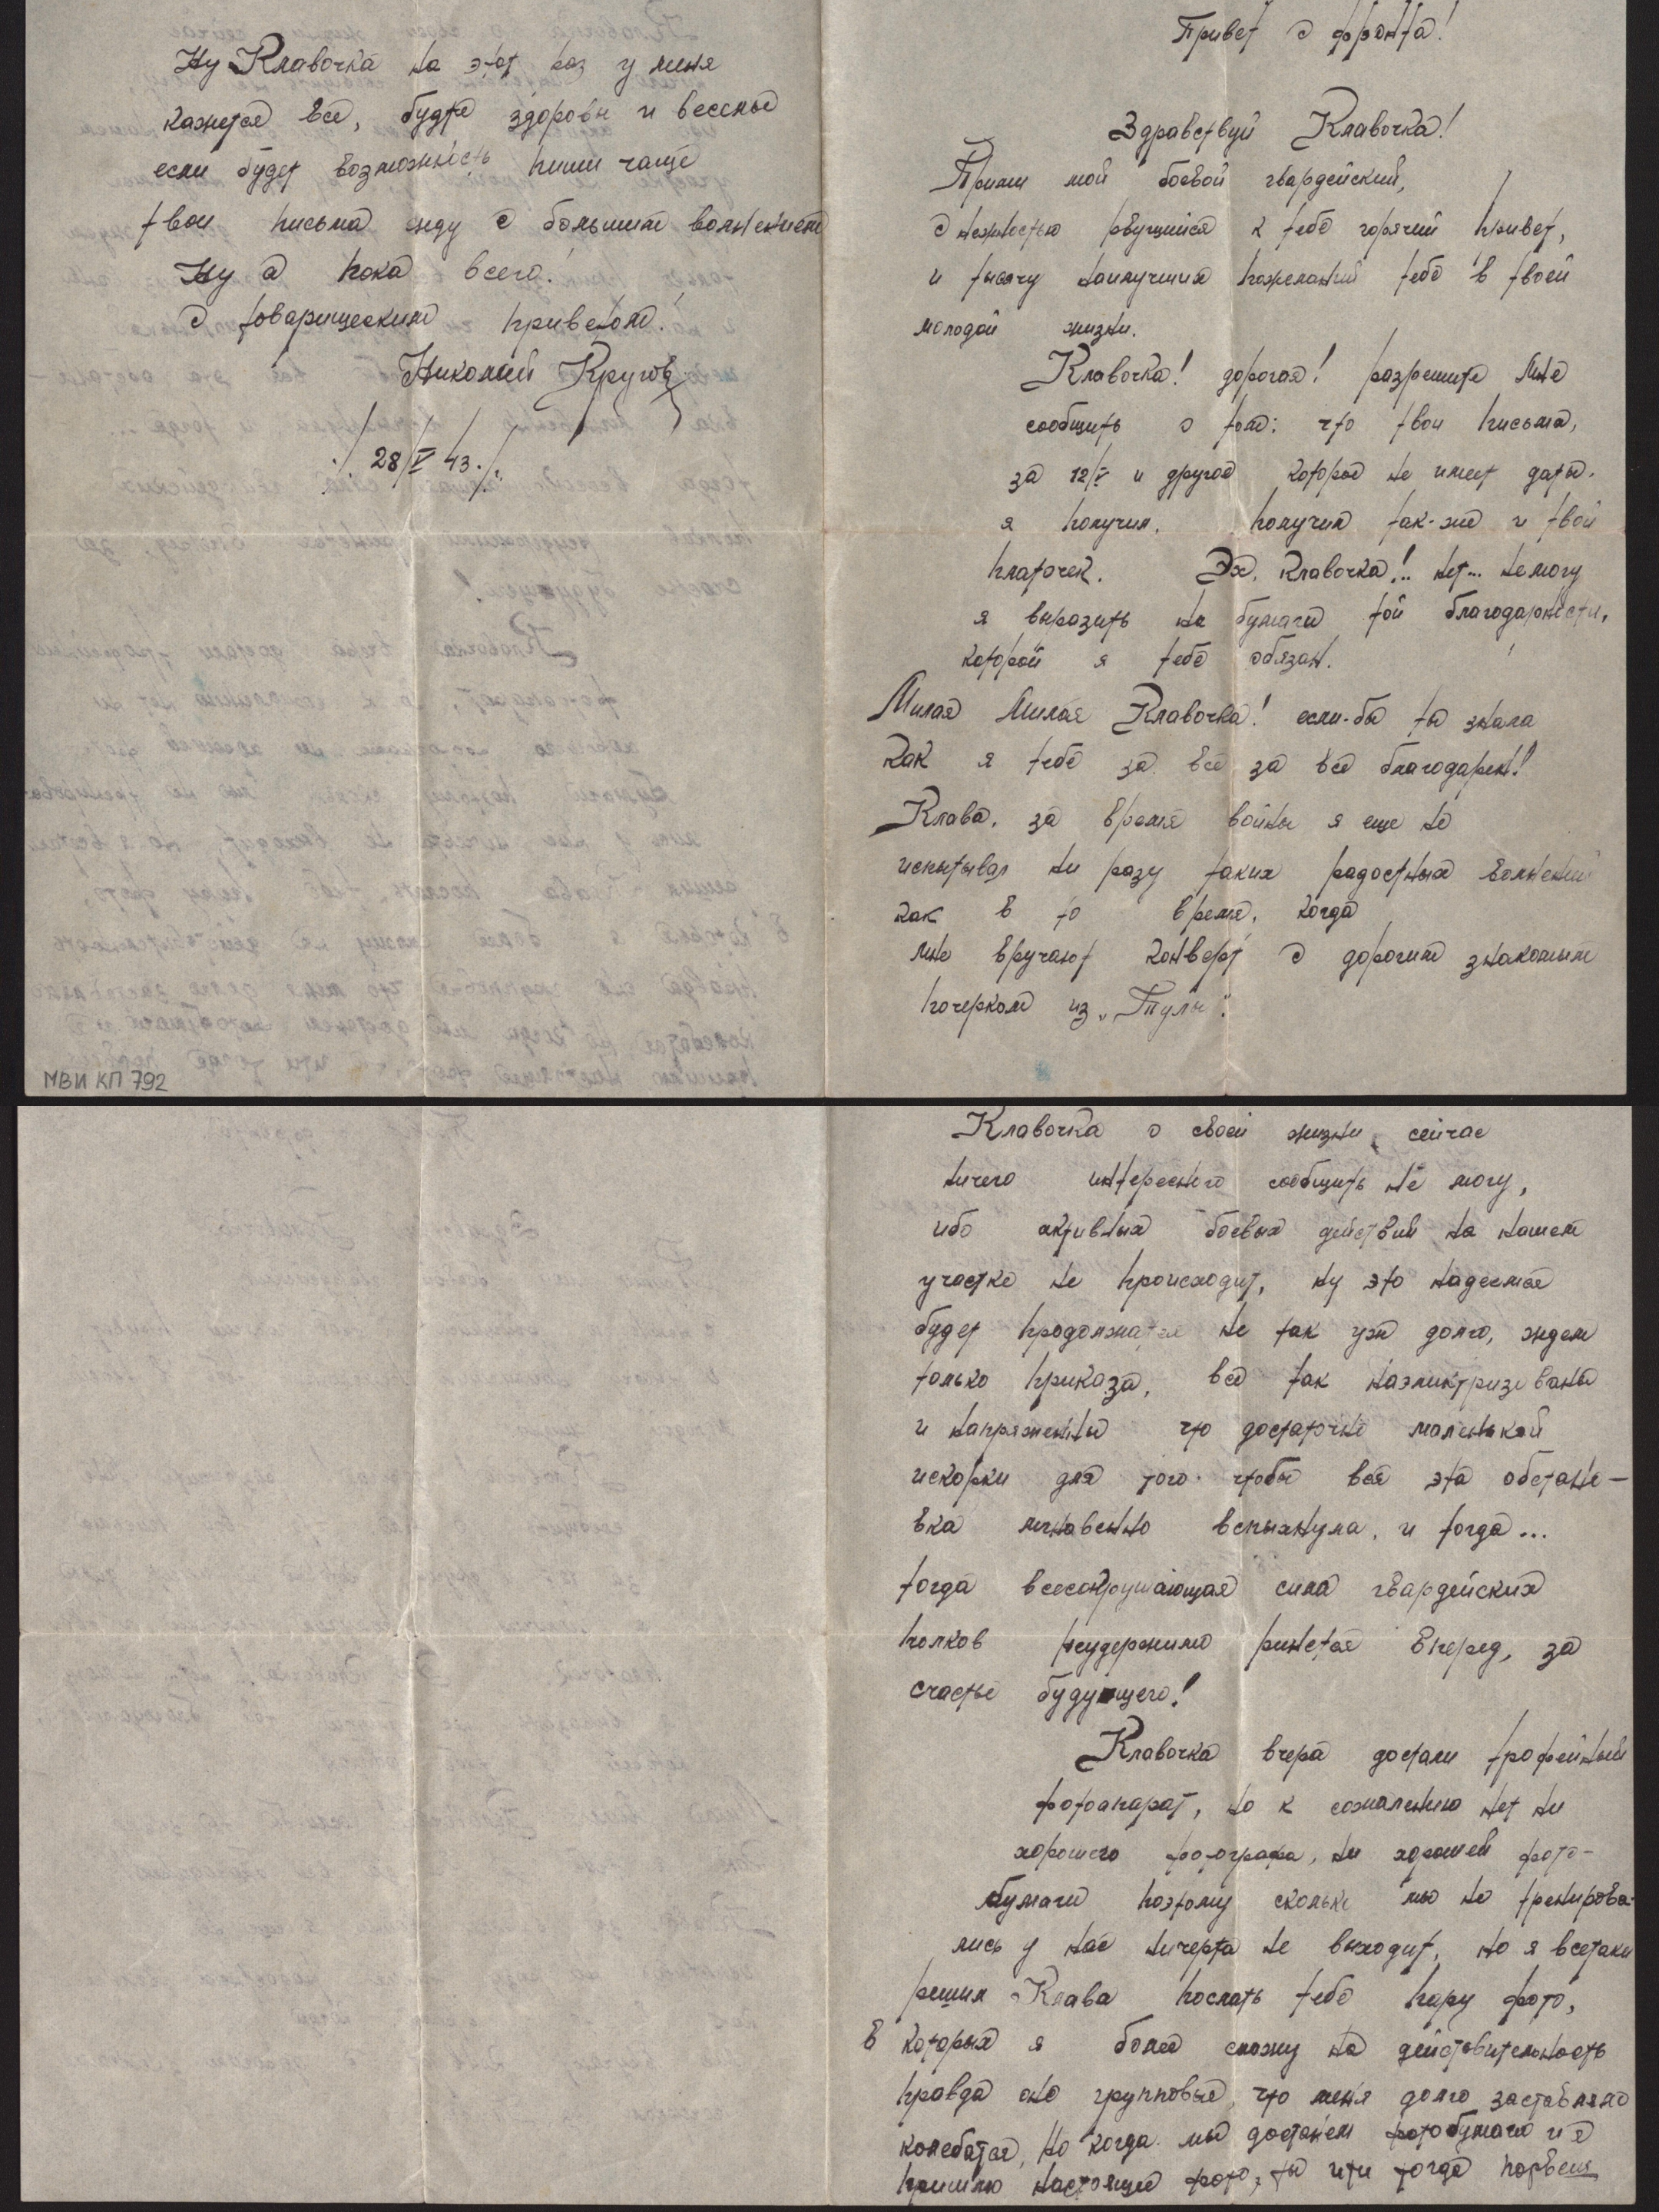 Привет с фронта!
Здравствуй Клавочка!
Прими мой боевой гвардейский,
с нежностью рвущийся к тебе горячий привет,
и тысячу наилучших пожеланий тебе в твоей
молодой жизни.
Клавочка! дорогая! разрешите мне
сообщить о том: что твои письма,
за 12/V и другое которое не имеет даты.
я получил, получил так-же и твой
платочек. Эх, Клавочка!.. нет... не могу
я выразить на бумаги той благодарности,
которой я тебе обязан.
Милая Милая Клавочка! если-бы ты знала
как я тебе за все за все благодарен!
Клава, за время войны я еще не
испытывал ни разу таких радостных волнений
как в то время, когда
мне вручают конверт с дорогим знакомым
почерком из "Тулы".
Клавочка о своей жизни сейчас
ничего интересного сообщить не могу,
ибо активных боевых действий на нашем
участке не происходит, ну это надеемся
будет продолжатся не так уж долго, ждем
только приказа, все так наэликтризеваны
и напряженны что достаточно маленькой
искорки для того чтобы вся эта обстано-
вка мгнавенно вспыхнула, и тогда...
тогда всесокрушающая сила гвардейских
полков неудержимо ринется вперед, за
счастье будующего!
Клавочка вчера достали трофейный
фотоапарат, но к сожалению нет ни
хорошего фотографа, ни хорошей фото-
бумаги поэтому сколько мы не тренирова-
лись у нас ничерта не выходит, но я всетаки
решил Клава послать тебе пару фото,
в которых я более схожу на действительность
правда оно групповые, что меня долго заставляло
колебатся, но когда мы достанем фотобумаги и я
пришлю настоящее фото, ты эти тогда порвешь
Ну Клавочка на этот раз у меня
кажется все, будте здоровы и веселые
если будет возможность пиши чаще
твои письма жду с большим волнением
Ну а пока всего!
с товарищеским приветом!
Николай Кругов
/28/V 43./
МВИ КП 792